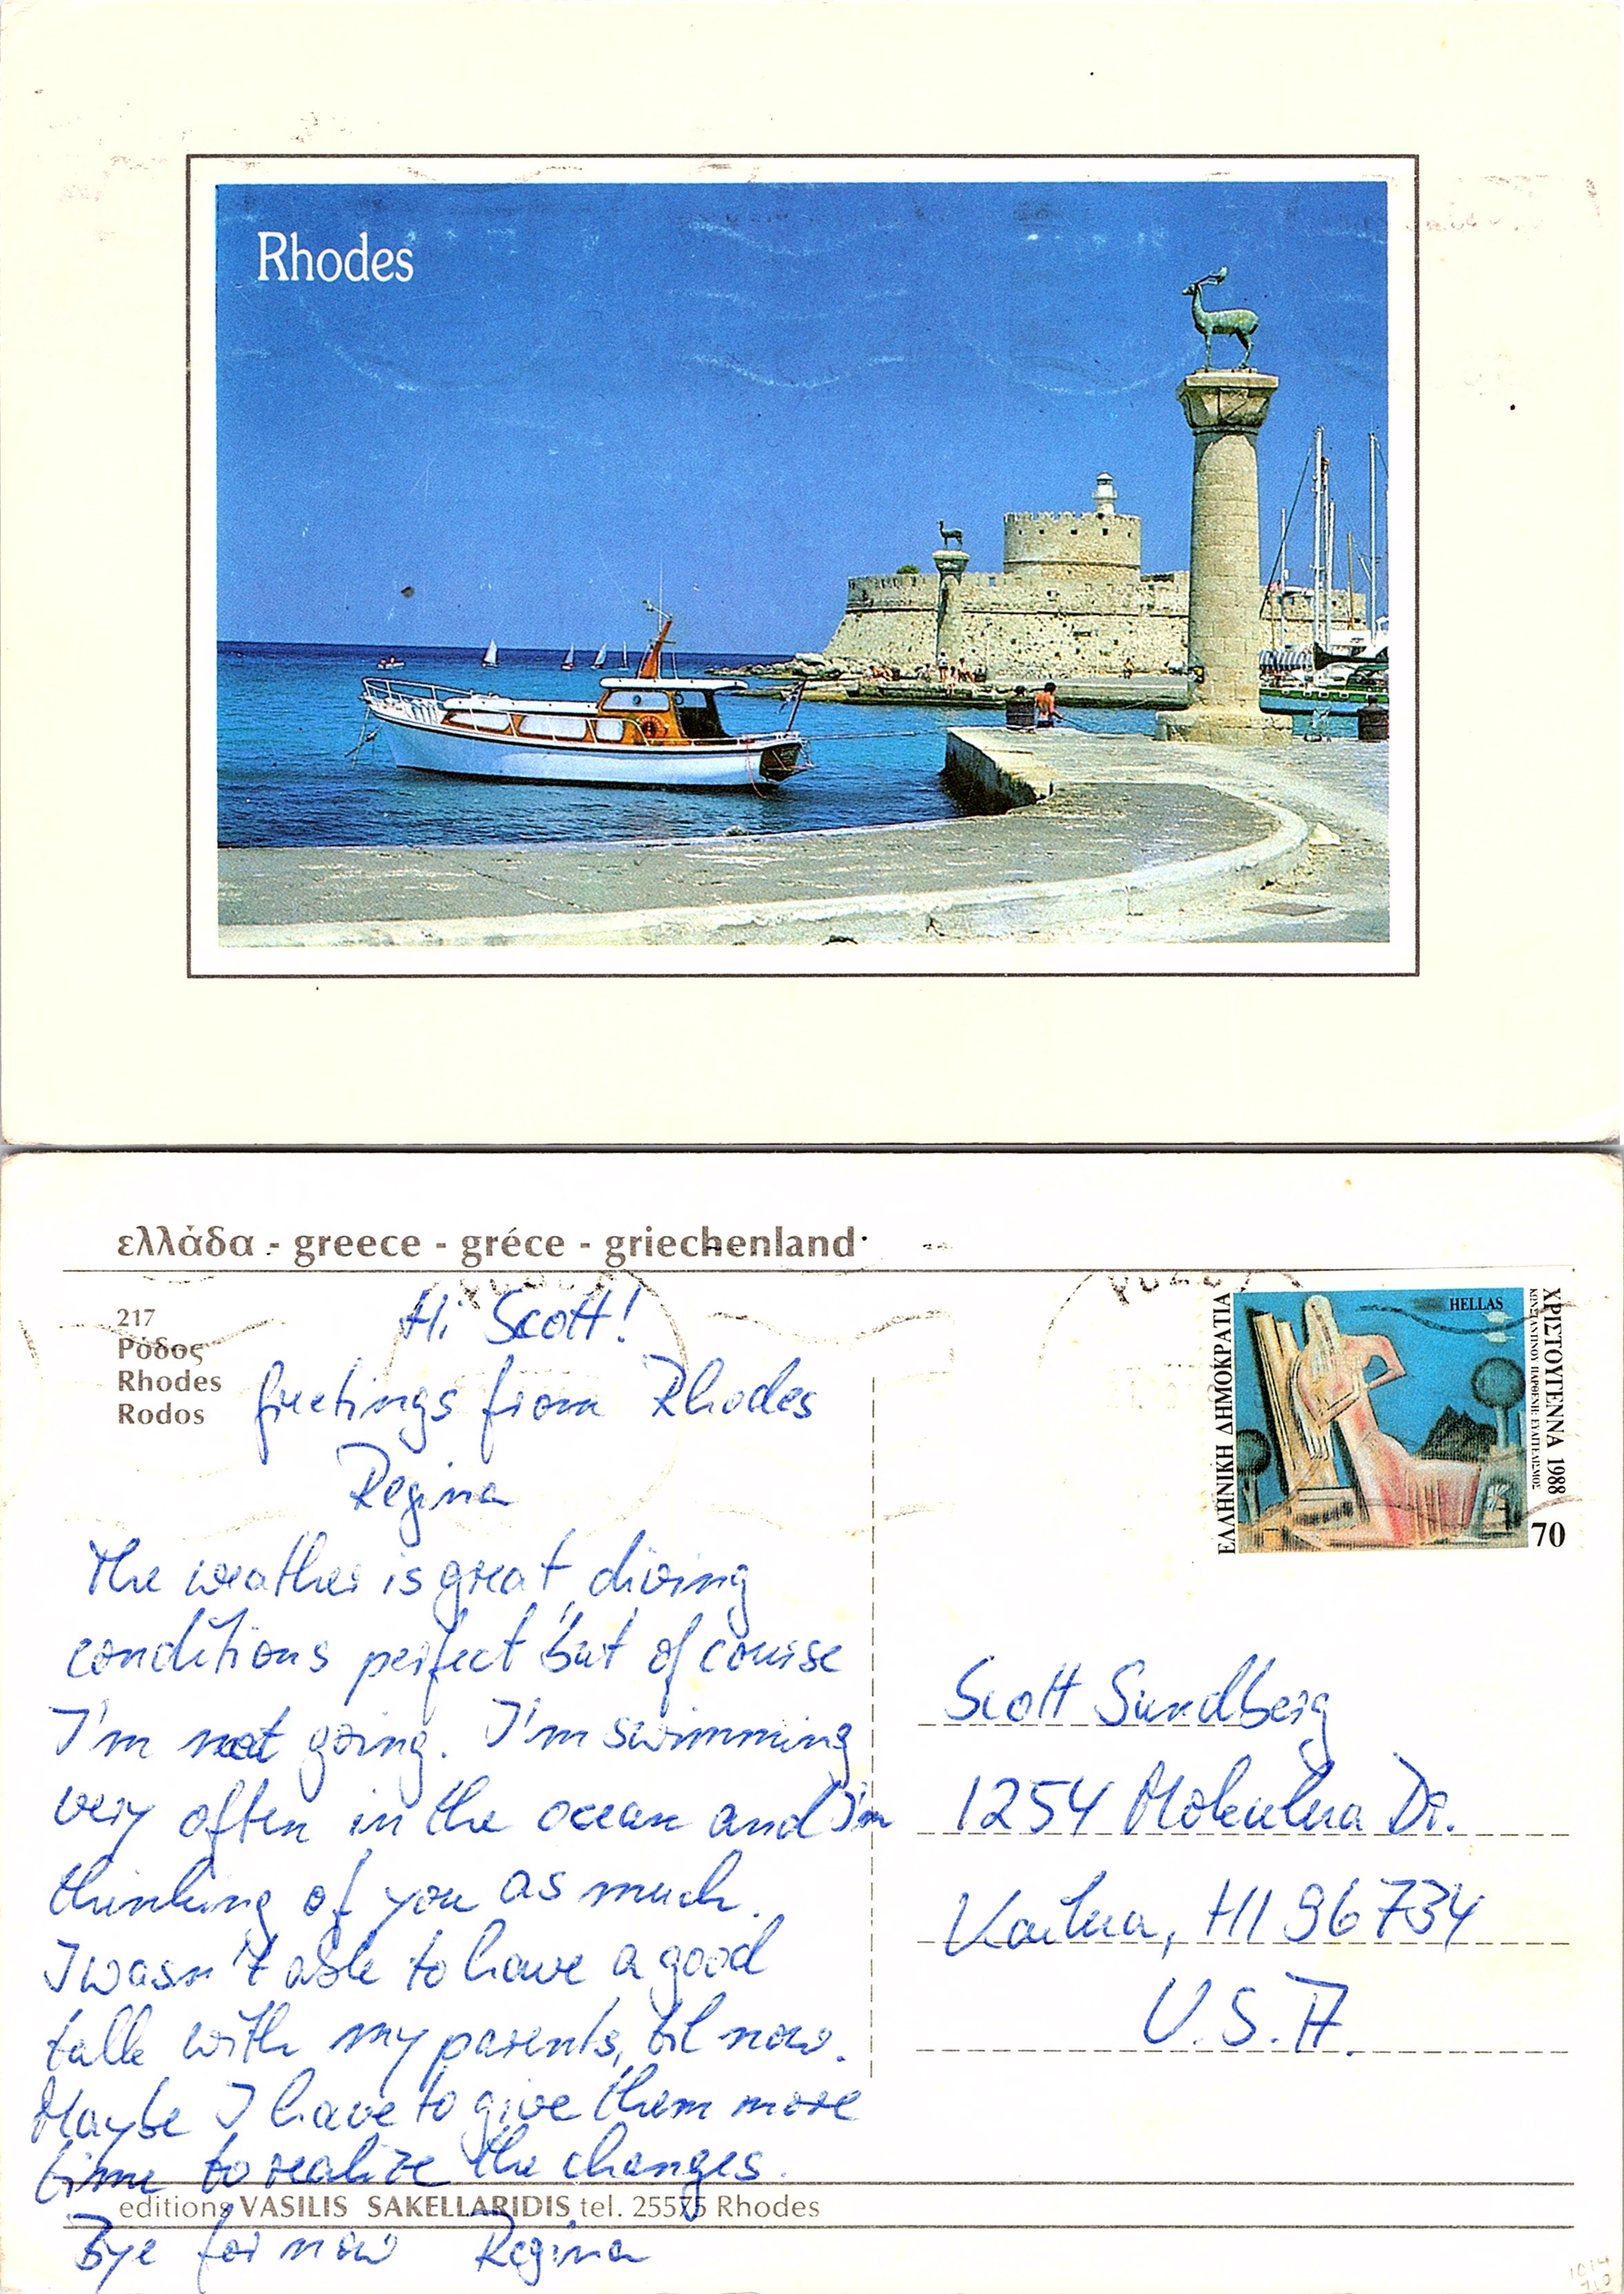 Rhodes
ελλάδα - greece - gréce - griechenland
217
Ρόδος
Rhodes
Rodos
Hi Scott!
Greetings from Rhodes
Regina
The weather is great, diving
conditions perfect but of course
I'm not going. I'm swimming
very often in the ocean and I'm
thinking of you as much.
I wasn't able to have a good
talk with my parents, til now.
Maybe I have to give them more
time to realize the changes.
Bye for now Regina
editions VASILIS SAKELLARIDIS tel. 25575 Rhodes
ΕΛΛΗΝΙΚΗ ΔΗΜΟΚΡΑΤΙΑ
HELLAS
ΧΡΙΣΤΟΥΓΕΝΝΑ 1988
ΚΩΝΣΤΑΝΤΙΝΟΥ ΠΑΡΘΕΝΗ: ΕΥΑΓΓΕΛΙΣΜΟΣ
70
Scott Sundberg
1254 Mokulua Dr.
Kailua, HI 96734
U.S.A.